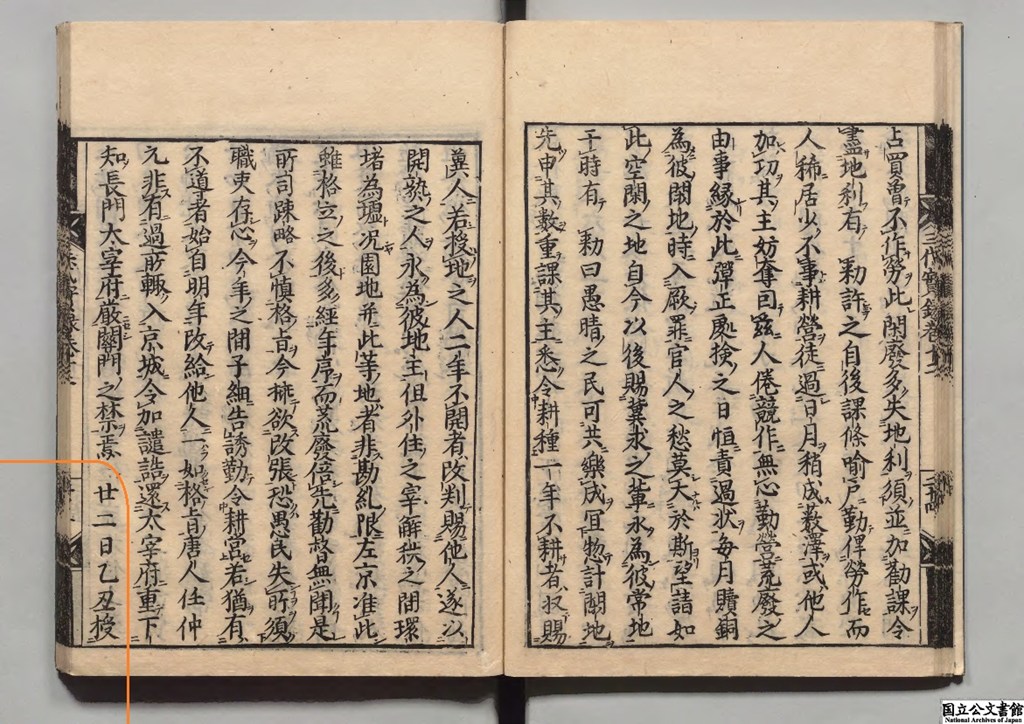 占買曾不作勞此閑廢多失地利須並加勸課令
盡地利有十勅許之自後課條喻戸勤俾勞作而
人稀居少不事耕營徒過日月稍成薮澤或他人
加功其主妨奪曰茲人倦競作無心勤營荒廢之
由事緣於此彈正處撿之日恒責過狀毎月贖銅
為彼閑地時入厥罪官人之愁莫大於斯望請如
此空閑之地自今以後賜冀求之輩永為彼常地
于時有勅曰愚暗之民可共樂成冝惣計閑地
先申其數重課其主悉令耕種一年不耕者収賜
冀人若授地之人二年不開者改判賜他人遂以
開熟之人永為彼地主但外住之宰解秩之間環
堵為墟况園地并此等地者非勘糺限左京准此
雖格立之後多經年序而荒廢倍先勸督無聞是
所司踈略不慎格㫖今擬欲改張恐愚民失所須
職吏存心今年之間子細告誘勤令耕営若猶有
不道者始自明年改給他人一如格㫖唐人任仲
元非有過所輙入京城令加譴詰還太宰府重下
知長門太宰府嚴關門之禁焉廿二日乙丑授
三代實録卷
國立公文書館
National Archives of Japan